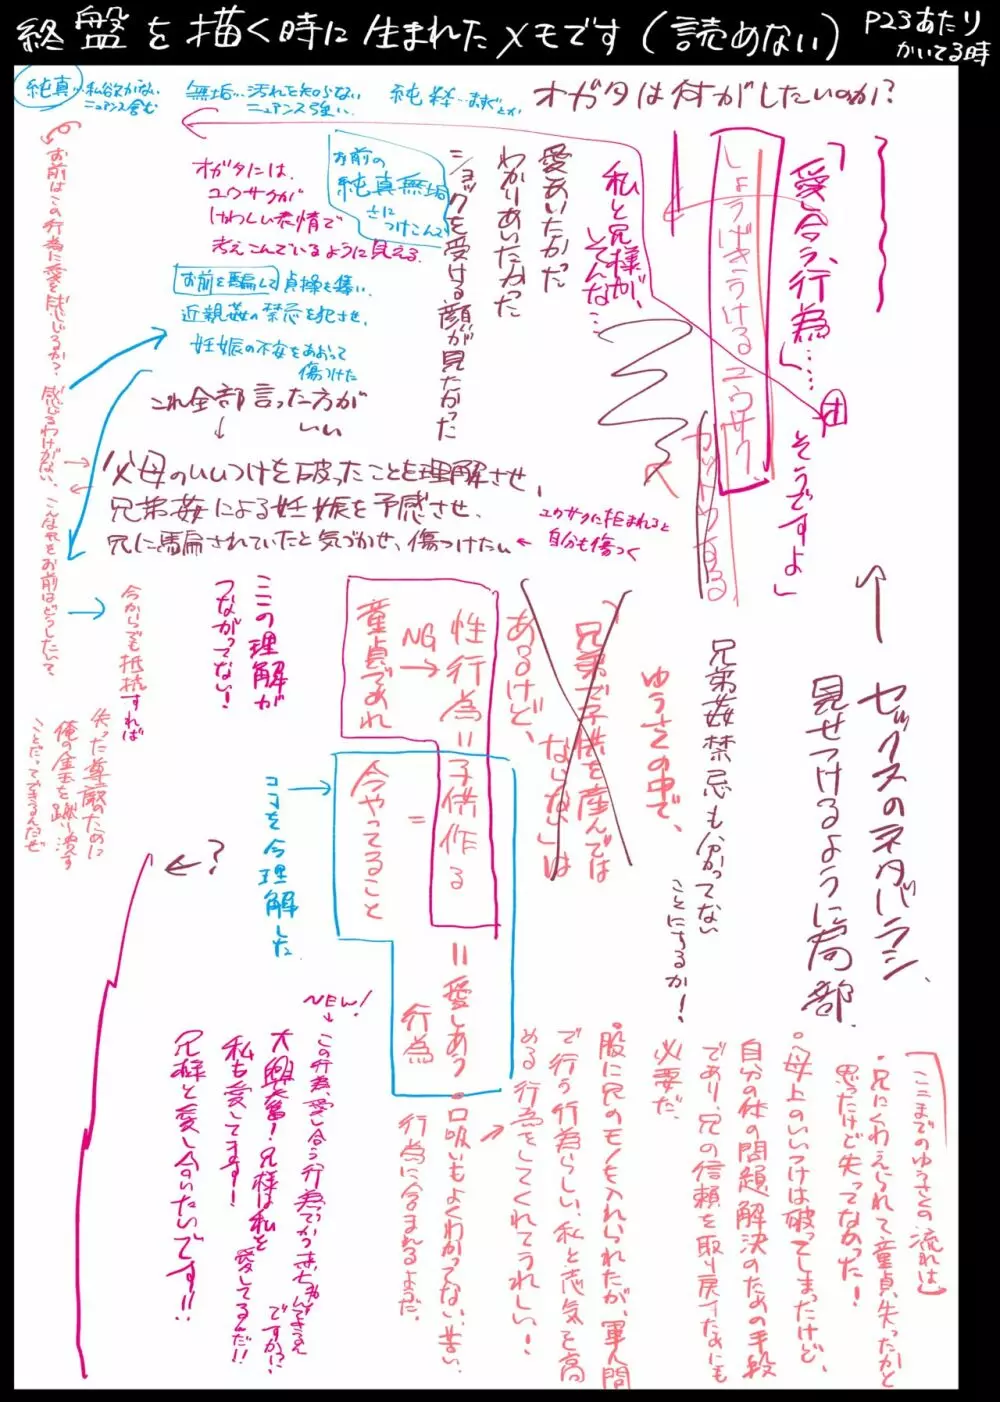 終盤を描く時に生まれたメモです(読めない)
P23あたり
かいてる時
純真…私欲がない
ニュアンス含む
無垢…汚れを知らない
ニュアンス強い
純粋…まぜ
オガタは何がしたいのか?
「愛し合う、行為」……
そうですよ」
しょうげきうけるユウサク
カットする
私と兄様が、
そんな…
愛しあいたかった
わかりあいたかった
ショックを受ける顔が見たかった
お前の
純真無垢
さに
つけこんで
オガタには、
ユウサクが
けわしい表情で
考えこんでいるように見える
お前を騙して貞操を奪い、
近親姦の禁忌を犯させ、
妊娠の不安をあおって
傷つけた
これ全部言った方が
いい
父母のいいつけを破ったことを理解させ、
兄弟姦による妊娠を予感させ、
兄に騙されていたと気づかせ、傷つけたい
ユウサクに拒まれると
自分も傷つく
お前はこの行為に愛を感じるか?
感じるわけがない、こんな兄をお前はどうしたいて
今からでも抵抗すれば
失った尊厳のために
俺の金玉を蹴り潰す
ことだってできるんだぜ
?
ここの理解が
つながってない!
性行為=子供作る
NG
童貞であれ
=
今やってること
=愛しあう
行為
ココを今理解した
「兄弟で子供を産んでは
ならない」は
あるけど、
ゆうさくの中で、
兄弟姦禁忌も分かってない
ことにするか!
セックスのネタバラシ、
見せつけるように局部
(ここまでのゆうさくの流れは)
・兄にくわえられて童貞失ったかと
思ったけど失ってなかった!
・母上のいいつけは破ってしまったけど、
自分の体の問題解決のための手段
であり、兄の信頼を取り戻すためにも
必要だ、
・股に兄のモノを入れられたが、軍人間
で行う行為らしい、私と志気を高
める行為をしてくれてうれしい!
・口吸いもよくわかってない、苦い、
行為に含まれるようだ、
NEW!
この行為、愛し合う行為でかつ赤ちゃんできるんですか!?
大興奮!兄様は私を
愛してるんだ!!
私も愛してます!
兄様と愛し合いたいです!!